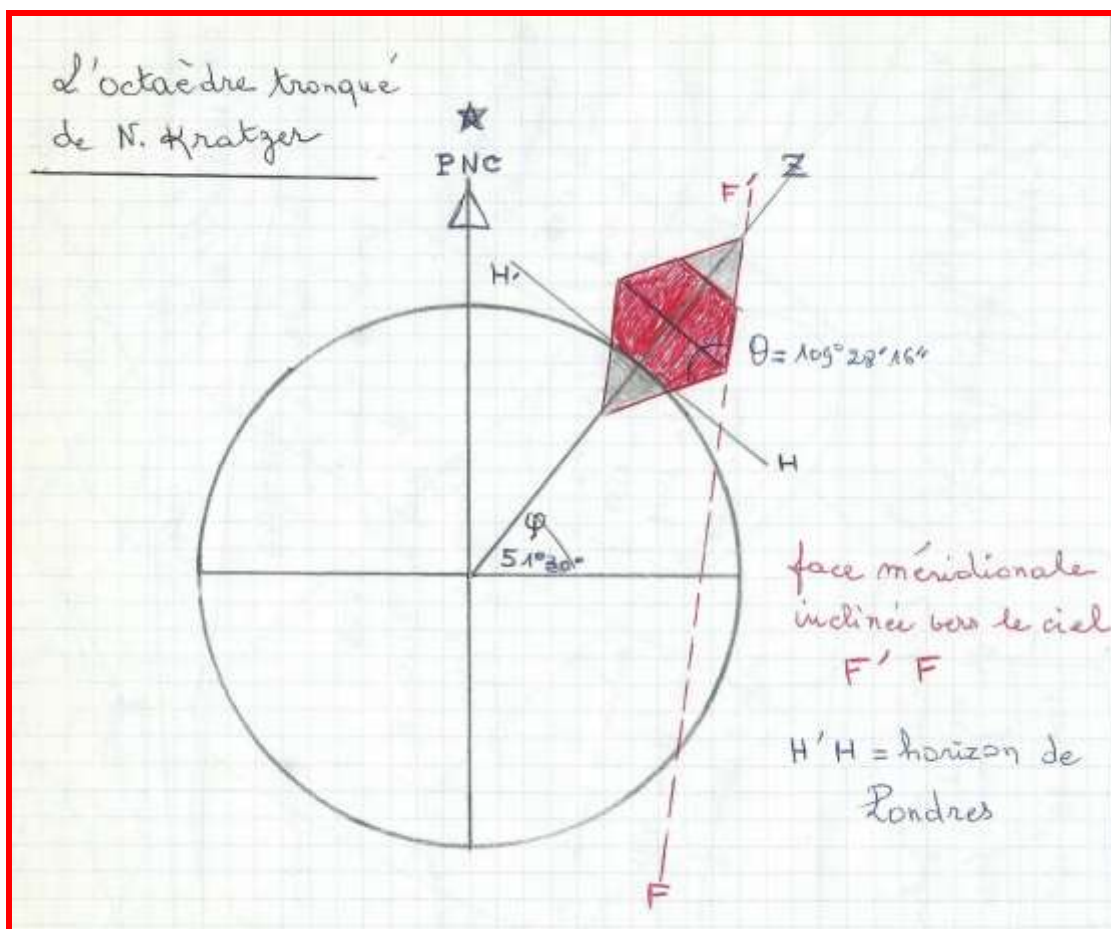 L'octaèdre tronqué
de N. Kratzer
PNC
Z
F'
H'
θ = 109° 28' 16"
H
φ
51°30'
face méridionale
inclinée vers le ciel
F' F
H'H = horizon de
Londres
F